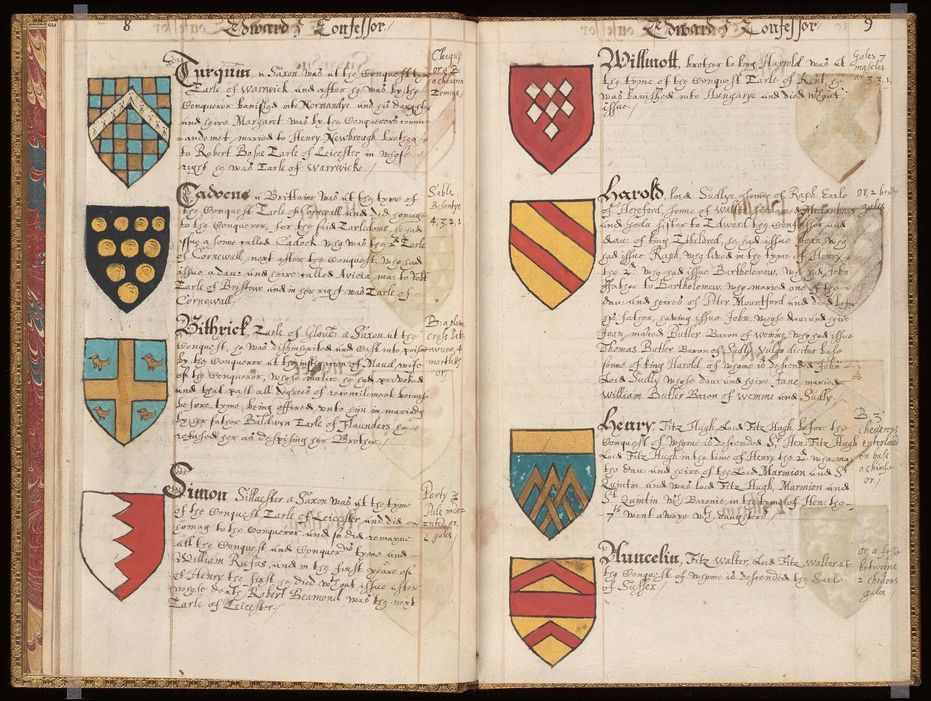 8
Edward ye Confessor /
Turquin a Saxon was at the Conquest tyme
Earle of Warwick and after he was by the
Conqueror banished into Normandye and his daughter
and heire Margaret was by the Conquerors comm-
andmet, maried to Henry Newbrough brother
to Robert Bosue Earle of Leicester in whose
right he was Earle of Warwicke. /
Chequy
or & B
a cheuron
Ermine
Cadoens a Brittaine was at the tyme of
the Conquest Earle of Cornwall and did homage
to the Conqueror, for the said Earledome, he had
issue a sonne called Cadock who was the 2d Earle
of Cornewall, next after the Conquest who had
issue a daur and heire called Avicia mar to
Earle of Brystowe and in her right was Earle of
Cornewall
Sable
Besantye
4, 3, 2, 1
Bithrick Earle of Gloucr a Saxon at the
Conquest, he was disinherited and Cast into prison
by the Conqueror at the instigation of Maud wife
of the Conqueror, whose malice he had provoked
and that past all degrees of reconcilment because
before tyme being offered unto him in mariadg
by her father Baldwyn Earle of Flaunders he
refused her
B: a plaine
cross bet-
weene, 4
martlets
or,
Simon Silluester a Saxon was at the tyme
of the Conquest Earle of Leicester and did
homag to the Conqueror and so did remayne
all the Conquest and Conquerors tyme and
William Rufus, and in the first yeare of
of Henry the first he died without issue after
whose death Robert Beamond was the next
Earle of Leicester. /
Party p
Pale
or,
& gules
9
Edward ye Confessor /
Willmott, brother to king Harrold was at
the tyme of the Conquest Earle of Kent he
was banished into Hungarye and died without
issue
Gules 7
mascles
or 3 3, 1,
Harold, lord Sudlye sonne of Raph Earle
of Hereford, sonne of
and Goda sister to Edward the Confessor and
daur of king Ethelred, he had issue John, who
had issue Raph, who lived in the tyme of Henry
the 2d who had issue Bartholomew, who had John
ffather to Bartholomew, who maried one of the
daur and heires of Peter Mountford and died before
his father, haveing issue John, whose daur and heire
Joan, maried Butler Baron of Wemme who had issue
Thomas Butler Baron of Sudly
sonne of king Harold, of whome is descended John
Lord Sudly whose daur and heire Jane, maried
William Butler Baron of Wemme and Sudly.
or, 2 bends
gules
Henry Fitz Hugh, Lord Fitz Hugh before the
Conquest of whome is descended Sr Hen: Fitz Hugh
Lord Fitz Hugh in the time of Henry the 2d who mar
the daur and heire of the Lord Marmion and St
Quintin and was Lord Fitz Hugh, Marmion and
St Quintin wch Baronie in the tyme of Hen: the
7th went awaye wth daughters
B 3
cheuerons
enterlaced
on base
a chiefe
or /
Auncelin, Fitz Walter, Lord Fitz Walter at
the Conquest of whome is descended the Earle
of Sussex
or a fesse
betweene
2 cheurons
gules